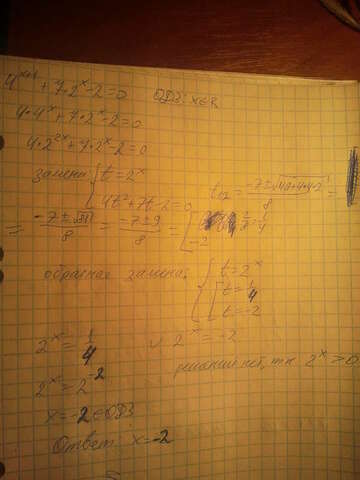 4^{x+1} + 7·2^x - 2 = 0 ОДЗ: x∈R
4·4^x + 7·2^x - 2 = 0
4·2^{2x} + 7·2^x - 2 = 0
замена { t = 2^x
4t² + 7t - 2 = 0 t_{1,2} = \frac{-7±\sqrt{49+4·4·2}}{8} =
= \frac{-7±\sqrt{81}}{8} = \frac{-7±9}{8} = [ \frac{2}{8} = \frac{1}{4}
-2
обратная замена: { t = 2^x
[ t = \frac{1}{4}
t = -2
2^x = \frac{1}{4} и 2^x = -2
2^x = 2^{-2} решений нет, т.к. 2^x > 0
x = -2 ∈ ОДЗ
Ответ: x = -2